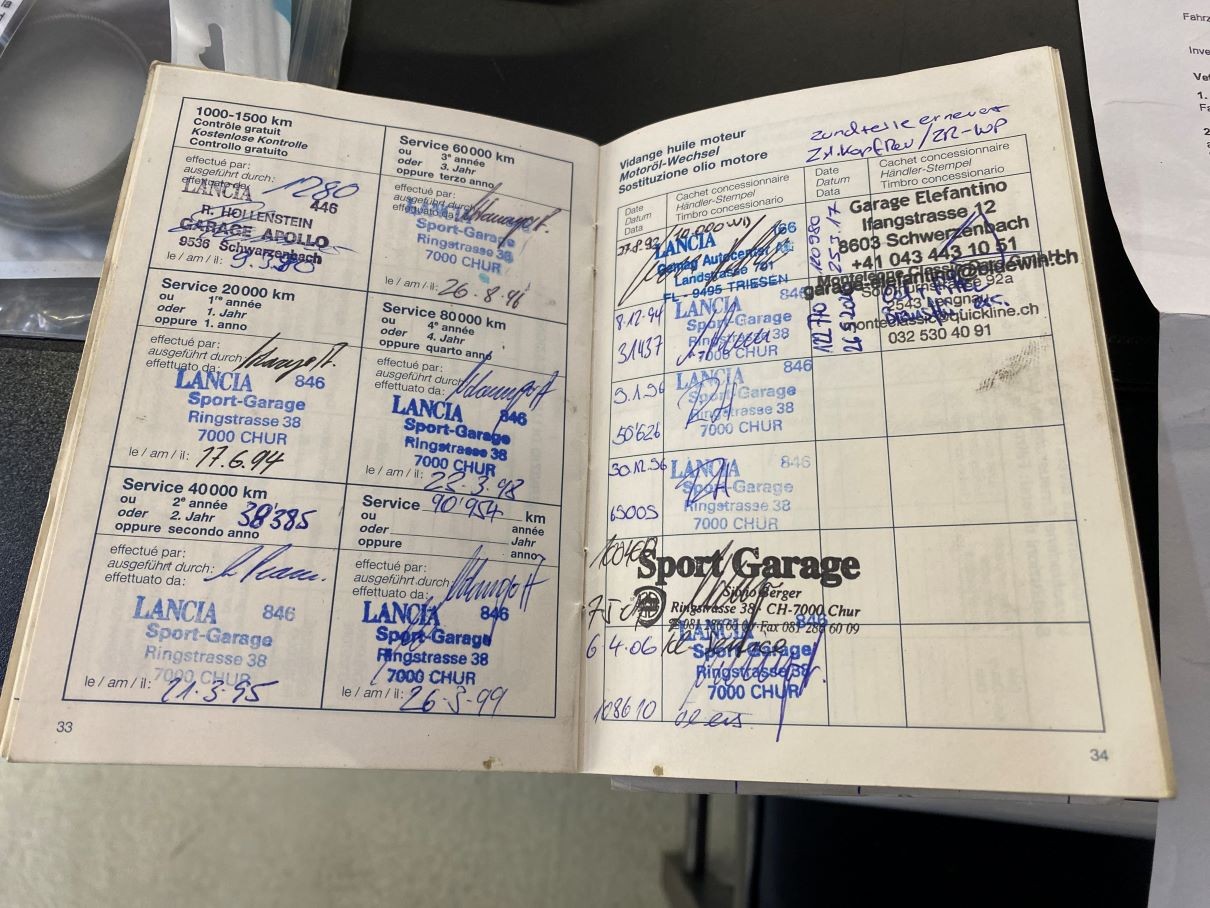 1000-1500 km
Contrôle gratuit
Kostenlose Kontrolle
Controllo gratuito
effectué par:
ausgeführt durch:
effettuato da:
1280
LANCIA 446
R. HOLLENSTEIN
GARAGE APOLLO
9536 Schwarzenbach
le / am / il:
Service 20 000 km
ou 1re année
oder 1. Jahr
oppure 1. anno
effectué par:
ausgeführt durch:
effettuato da:
LANCIA 846
Sport-Garage
Ringstrasse 38
7000 CHUR
le / am / il: 17.6.94
Service 40 000 km
ou 2e année
oder 2. Jahr 38'385
oppure secondo anno
effectué par:
ausgeführt durch:
effettuato da:
LANCIA 846
Sport-Garage
Ringstrasse 38
7000 CHUR
le / am / il: 21.3.95
33
Service 60 000 km
ou 3e année
oder 3. Jahr
oppure terzo anno
effectué par:
ausgeführt durch:
effettuato da:
LANCIA
Sport-Garage
Ringstrasse 38
7000 CHUR
le / am / il: 26.8.96
Service 80 000 km
ou 4e année
oder 4. Jahr
oppure quarto anno
effectué par:
ausgeführt durch:
effettuato da:
LANCIA 846
Sport-Garage
Ringstrasse 38
7000 CHUR
le / am / il: 22.3.98
Service 90'954 km
ou année
oder Jahr
oppure anno
effectué par:
ausgeführt durch:
effettuato da:
LANCIA 846
Sport-Garage
Ringstrasse 38
7000 CHUR
le / am / il: 26.3.99
Vidange huile moteur
Motoröl-Wechsel
Sostituzione olio motore
Zündteile erneuert
Zyl. Kopf Rev / ZR-WP
Date
Datum
Data
Cachet concessionnaire
Händler-Stempel
Timbro concessionario
Date
Datum
Data
Cachet concessionnaire
Händler-Stempel
Timbro concessionario
LANCIA 166
Landstrasse 781
FL - 9495 TRIESEN
8.12.94
31437
LANCIA 846
Sport-Garage
Ringstrasse 38
7000 CHUR
9.1.96
50'626
LANCIA 846
Sport-Garage
Ringstrasse 38
7000 CHUR
30.12.96
65005
LANCIA 846
Sport-Garage
Ringstrasse 38
7000 CHUR
Sport Garage
Silvio Berger
Ringstrasse 38 · CH-7000 Chur
6.4.06
108610
LANCIA 846
Sport-Garage
Ringstrasse 38
7000 CHUR
120980
25.3.17
Garage Elefantino
Ifangstrasse 12
8603 Schwerzenbach
+41 043 443 10 51
122710
monteclassic@quickline.ch
032 530 40 91
34